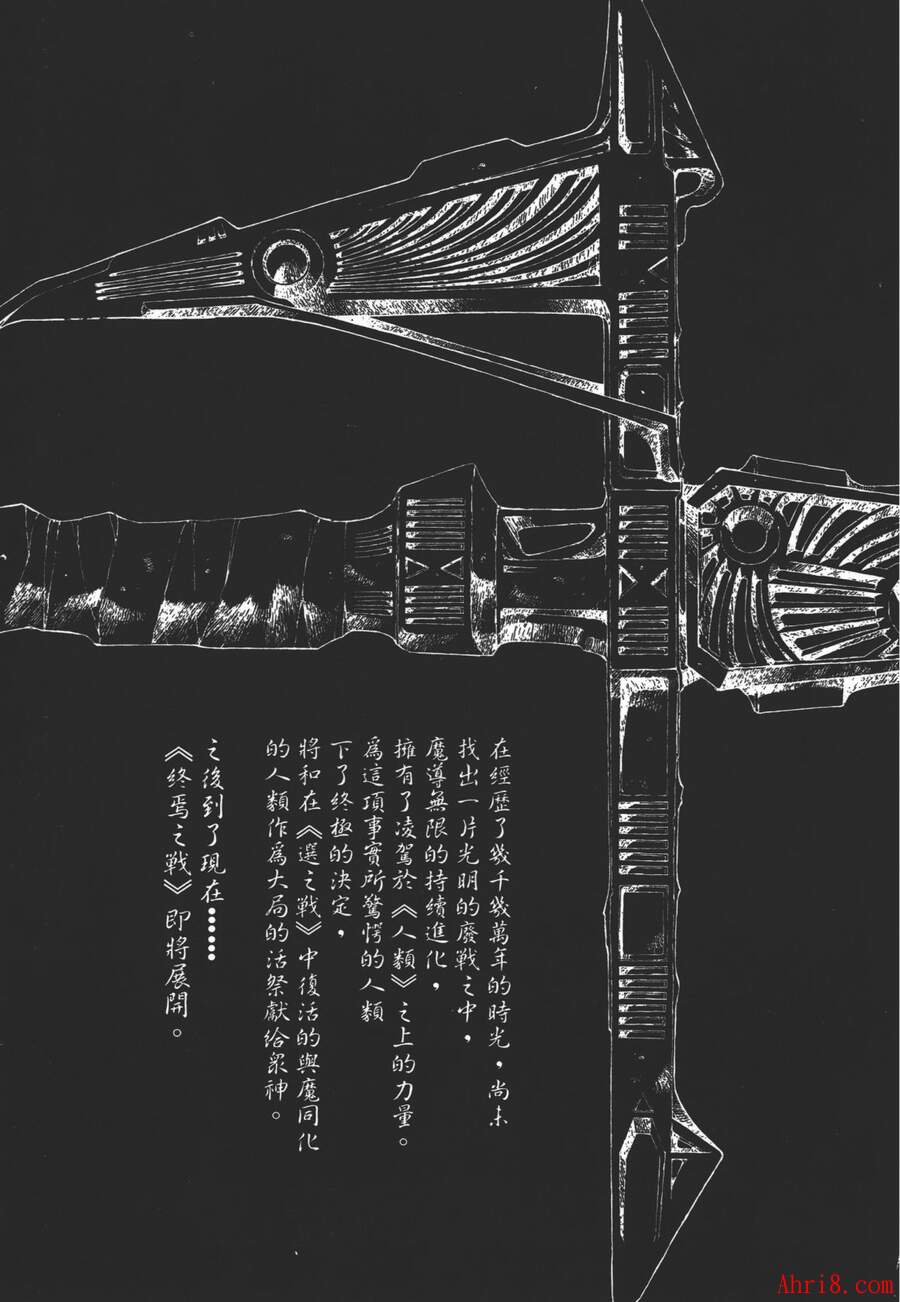 在經歷了幾千幾萬年的時光，尚未
找出一片光明的廢戰之中，
魔導無限的持續進化，
擁有了凌駕於《人類》之上的力量。
為這項事實所驚愕的人類
下了終極的決定，
將和在《選之戰》中復活的與魔同化
的人類作為大局的活祭獻給眾神。
之後到了現在……
《終焉之戰》即將展開。
Ahri8.com